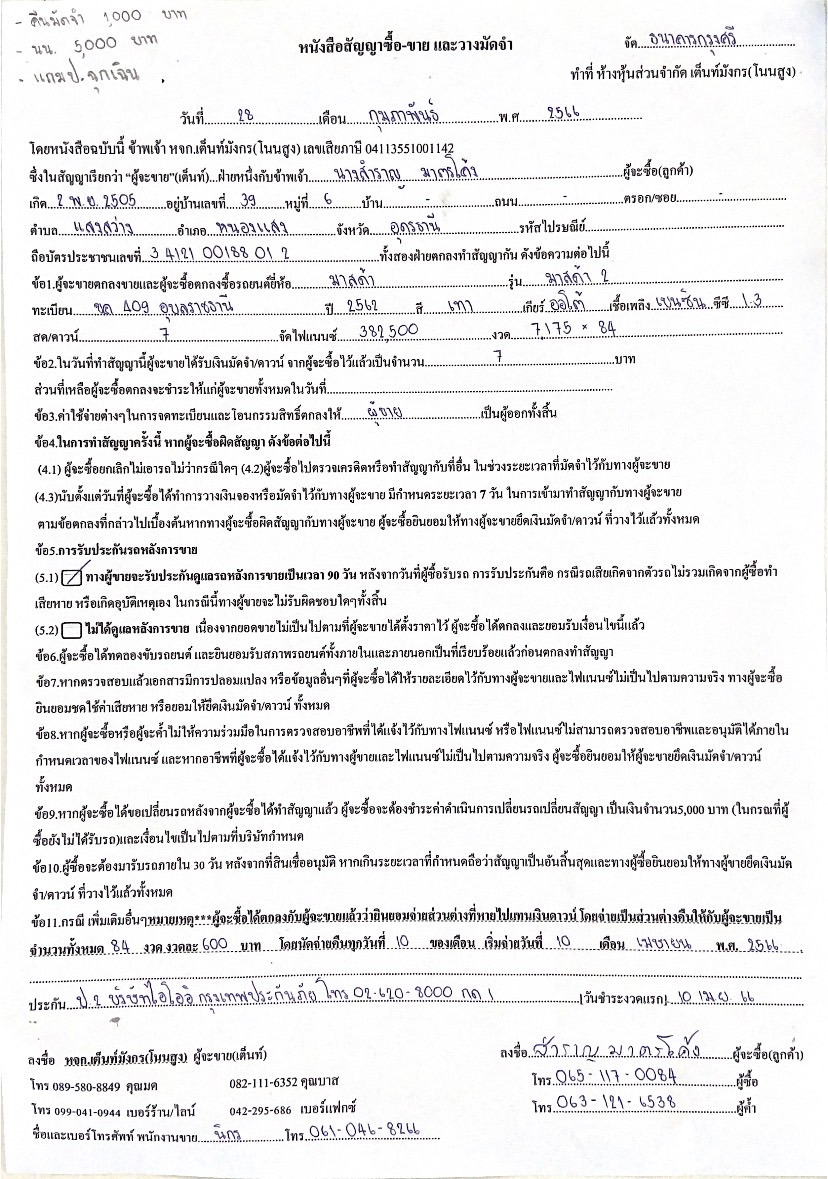 - คืนมัดจำ 1,000 บาท
- นน. 5,000 บาท
- แถมป.ฉุกเฉิน
หนังสือสัญญาซื้อ-ขาย และวางมัดจำ
จัด ธนาคารกรุงศรี
ทำที่ ห้างหุ้นส่วนจำกัด เต็นท์มังกร(โนนสูง)
วันที่ 28 เดือน กุมภาพันธ์ พ.ศ 2566
โดยหนังสือฉบับนี้ ข้าพเจ้า หจก.เต็นท์มังกร(โนนสูง) เลขเสียภาษี 04113551001142
ซึ่งในสัญญาเรียกว่า "ผู้จะขาย"(เต็นท์)...ฝ่ายหนึ่งกับข้าพเจ้า นางสำราญ มาตรโค้ง ผู้จะซื้อ(ลูกค้า)
เกิด 2 พ.ย. 2505 อยู่บ้านเลขที่ 39 หมู่ที่ 6 บ้าน - ถนน - ตรอก/ซอย -
ตำบล แสงสว่าง อำเภอ หนองแสง จังหวัด อุดรธานี รหัสไปรษณีย์
ถือบัตรประชาชนเลขที่ 3 4121 00188 01 2 ทั้งสองฝ่ายตกลงทำสัญญากัน ดังข้อความต่อไปนี้
ข้อ1.ผู้จะขายตกลงขายและผู้จะซื้อตกลงซื้อรถยนต์ยี่ห้อ มาสด้า รุ่น มาสด้า 2
ทะเบียน ขค 409 อุบลราชธานี ปี 2562 สี เทา เกียร์ ออโต้ เชื้อเพลิง เบนซิน ซีซี 1.3
สด/ดาวน์ 7 จัดไฟแนนซ์ 382,500 งวด 7,175 × 84
ข้อ2.ในวันที่ทำสัญญานี้ผู้จะขายได้รับเงินมัดจำ/ดาวน์ จากผู้จะซื้อไว้แล้วเป็นจำนวน 7 บาท
ส่วนที่เหลือผู้จะซื้อตกลงจะชำระให้แก่ผู้จะขายทั้งหมดในวันที่
ข้อ3.ค่าใช้จ่ายต่างๆในการจดทะเบียนและโอนกรรมสิทธิ์ตกลงให้ ผู้ขาย เป็นผู้ออกทั้งสิ้น
ข้อ4.ในการทำสัญญาครั้งนี้ หากผู้จะซื้อผิดสัญญา ดังข้อต่อไปนี้
(4.1) ผู้จะซื้อยกเลิกไม่เอารถไม่ว่ากรณีใดๆ (4.2)ผู้จะซื้อไปตรวจเครดิตหรือทำสัญญากับที่อื่น ในช่วงระยะเวลาที่มัดจำไว้กับทางผู้จะขาย
(4.3)นับตั้งแต่วันที่ผู้จะซื้อได้ทำการวางเงินจองหรือมัดจำไว้กับทางผู้จะขาย มีกำหนดระยะเวลา 7 วัน ในการเข้ามาทำสัญญากับทางผู้จะขาย
ตามข้อตกลงที่กล่าวไปเบื้องต้นหากทางผู้จะซื้อผิดสัญญากับทางผู้จะขาย ผู้จะซื้อยินยอมให้ทางผู้จะขายยึดเงินมัดจำ/ดาวน์ ที่วางไว้แล้วทั้งหมด
ข้อ5.การรับประกันรถหลังการขาย
(5.1) ทางผู้ขายจะรับประกันดูแลรถหลังการขายเป็นเวลา 90 วัน หลังจากวันที่ผู้ซื้อรับรถ การรับประกันคือ กรณีรถเสียเกิดจากตัวรถไม่รวมเกิดจากผู้ซื้อทำ
เสียหาย หรือเกิดอุบัติเหตุเอง ในกรณีนี้ทางผู้ขายจะไม่รับผิดชอบใดๆทั้งสิ้น
(5.2) ไม่ได้ดูแลหลังการขาย เนื่องจากยอดขายไม่เป็นไปตามที่ผู้จะขายได้ตั้งราคาไว้ ผู้จะซื้อได้ตกลงและยอมรับเงื่อนไขนี้แล้ว
ข้อ6.ผู้จะซื้อได้ทดลองขับรถยนต์ และยินยอมรับสภาพรถยนต์ทั้งภายในและภายนอกเป็นที่เรียบร้อยแล้วก่อนตกลงทำสัญญา
ข้อ7.หากตรวจสอบแล้วเอกสารมีการปลอมแปลง หรือข้อมูลอื่นๆที่ผู้จะซื้อได้ให้รายละเอียดไว้กับทางผู้จะขายและไฟแนนซ์ไม่เป็นไปตามความจริง ทางผู้จะซื้อ
ยินยอมชดใช้ค่าเสียหาย หรือยอมให้ยึดเงินมัดจำ/ดาวน์ ทั้งหมด
ข้อ8.หากผู้จะซื้อหรือผู้จะค้ำไม่ให้ความร่วมมือในการตรวจสอบอาชีพที่ได้แจ้งไว้กับทางไฟแนนซ์ หรือไฟแนนซ์ไม่สามารถตรวจสอบอาชีพและอนุมัติได้ภายใน
กำหนดเวลาของไฟแนนซ์ และหากอาชีพที่ผู้จะซื้อได้แจ้งไว้กับทางผู้ขายและไฟแนนซ์ไม่เป็นไปตามความจริง ผู้จะซื้อยินยอมให้ผู้จะขายยึดเงินมัดจำ/ดาวน์
ทั้งหมด
ข้อ9.หากผู้จะซื้อได้ขอเปลี่ยนรถหลังจากผู้จะซื้อได้ทำสัญญาแล้ว ผู้จะซื้อจะต้องชำระค่าดำเนินการเปลี่ยนรถเปลี่ยนสัญญา เป็นเงินจำนวน5,000 บาท (ในกรณีที่ผู้
ซื้อยังไม่ได้รับรถ)และเงื่อนไขเป็นไปตามที่บริษัทกำหนด
ข้อ10.ผู้ซื้อจะต้องมารับรถภายใน 30 วัน หลังจากที่สินเชื่ออนุมัติ หากเกินระยะเวลาที่กำหนดถือว่าสัญญาเป็นอันสิ้นสุดและทางผู้ซื้อยินยอมให้ทางผู้จะขายยึดเงินมัด
จำ/ดาวน์ ที่วางไว้แล้วทั้งหมด
ข้อ11.กรณี เพิ่มเติมอื่นๆหมายเหตุ***ผู้จะซื้อได้ตกลงกับผู้จะขายแล้วว่ายินยอมจ่ายส่วนต่างที่หายไปแทนเงินดาวน์ โดยจ่ายเป็นส่วนต่างคืนให้กับผู้จะขายเป็น
จำนวนทั้งหมด 84 งวด งวดละ 600 บาท โดยนัดจ่ายคืนทุกวันที่ 10 ของเดือน เริ่มจ่ายวันที่ 10 เดือน เมษายน พ.ศ. 2566
ประกัน ป.2 บริษัทไอโออิ กรุงเทพประกันภัย โทร 02-620-8000 กด 1 [วันชำระงวดแรก] 10 เม.ย. 66
ลงชื่อ หจก.เต็นท์มังกร(โนนสูง) ผู้จะขาย(เต็นท์)
ลงชื่อ สำราญ มาตรโค้ง ผู้จะซื้อ(ลูกค้า)
โทร 089-580-8849 คุณมด 082-111-6352 คุณบาส
โทร 065-117-0084 ผู้ซื้อ
โทร 099-041-0944 เบอร์ร้าน/ไลน์ 042-295-686 เบอร์แฟกซ์
โทร 063-121-6538 ผู้ค้ำ
ชื่อและเบอร์โทรศัพท์ พนักงานขาย นิกร โทร 061-046-8266